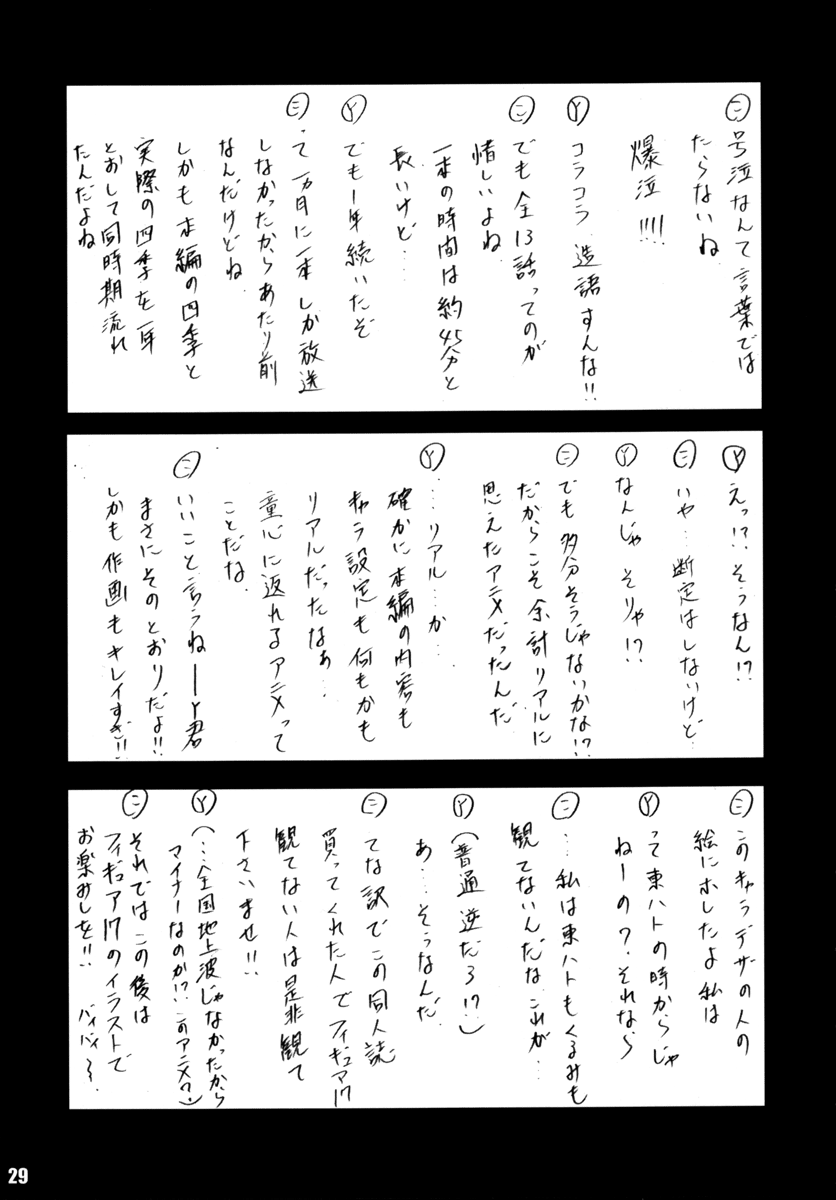 ㊁ 号泣なんて言葉では
たらないね
爆泣!!!!
Ⓨ コラコラ、造語すんな!!
㊁ でも全13話ってのが
惜しいよね
一本の時間は約45分と
長いけど…
Ⓨ でも1年続いたぞ
㊁ って一ヵ月に一本しか放送
しなかったからあたり前
なんだけどね
しかも本編の四季と
実際の四季を一年
とおして同時期流れ
たんだよね
Ⓨ えっ!?そうなん!?
㊁ いや…断定はしないけど…
Ⓨ なんじゃそりゃ!?
㊁ でも多分そうじゃないかな!?
だからこそ余計リアルに
思えたアニメだったんだ
Ⓨ …リアル…か
確かに本編の内容も
キャラ設定も何もかも
リアルだったなぁ…
童心に返れるアニメって
ことだな
㊁ いいこと言うねーY君
まさにそのとおりだよ!!
しかも作画もキレイすぎ!!
㊁ このキャラデザの人の
絵にホレたよ私は
Ⓨ って東ハトの時からじゃ
ねーの?それなら
㊁ …私は東ハトもくるみも
観てないんだなこれが…
Ⓨ (普通逆だろ!?)
あ…そうなんだ
㊁ てな訳でこの同人誌
買ってくれた人でフィギュア17
観てない人は是非観て
下さいませ!!
Ⓨ (…全国地上波じゃなかったから
マイナーなのか!?このアニメ?)
㊁ それではこの後は
フィギュア17のイラストで
お楽みしを!! バイバイ〜
29